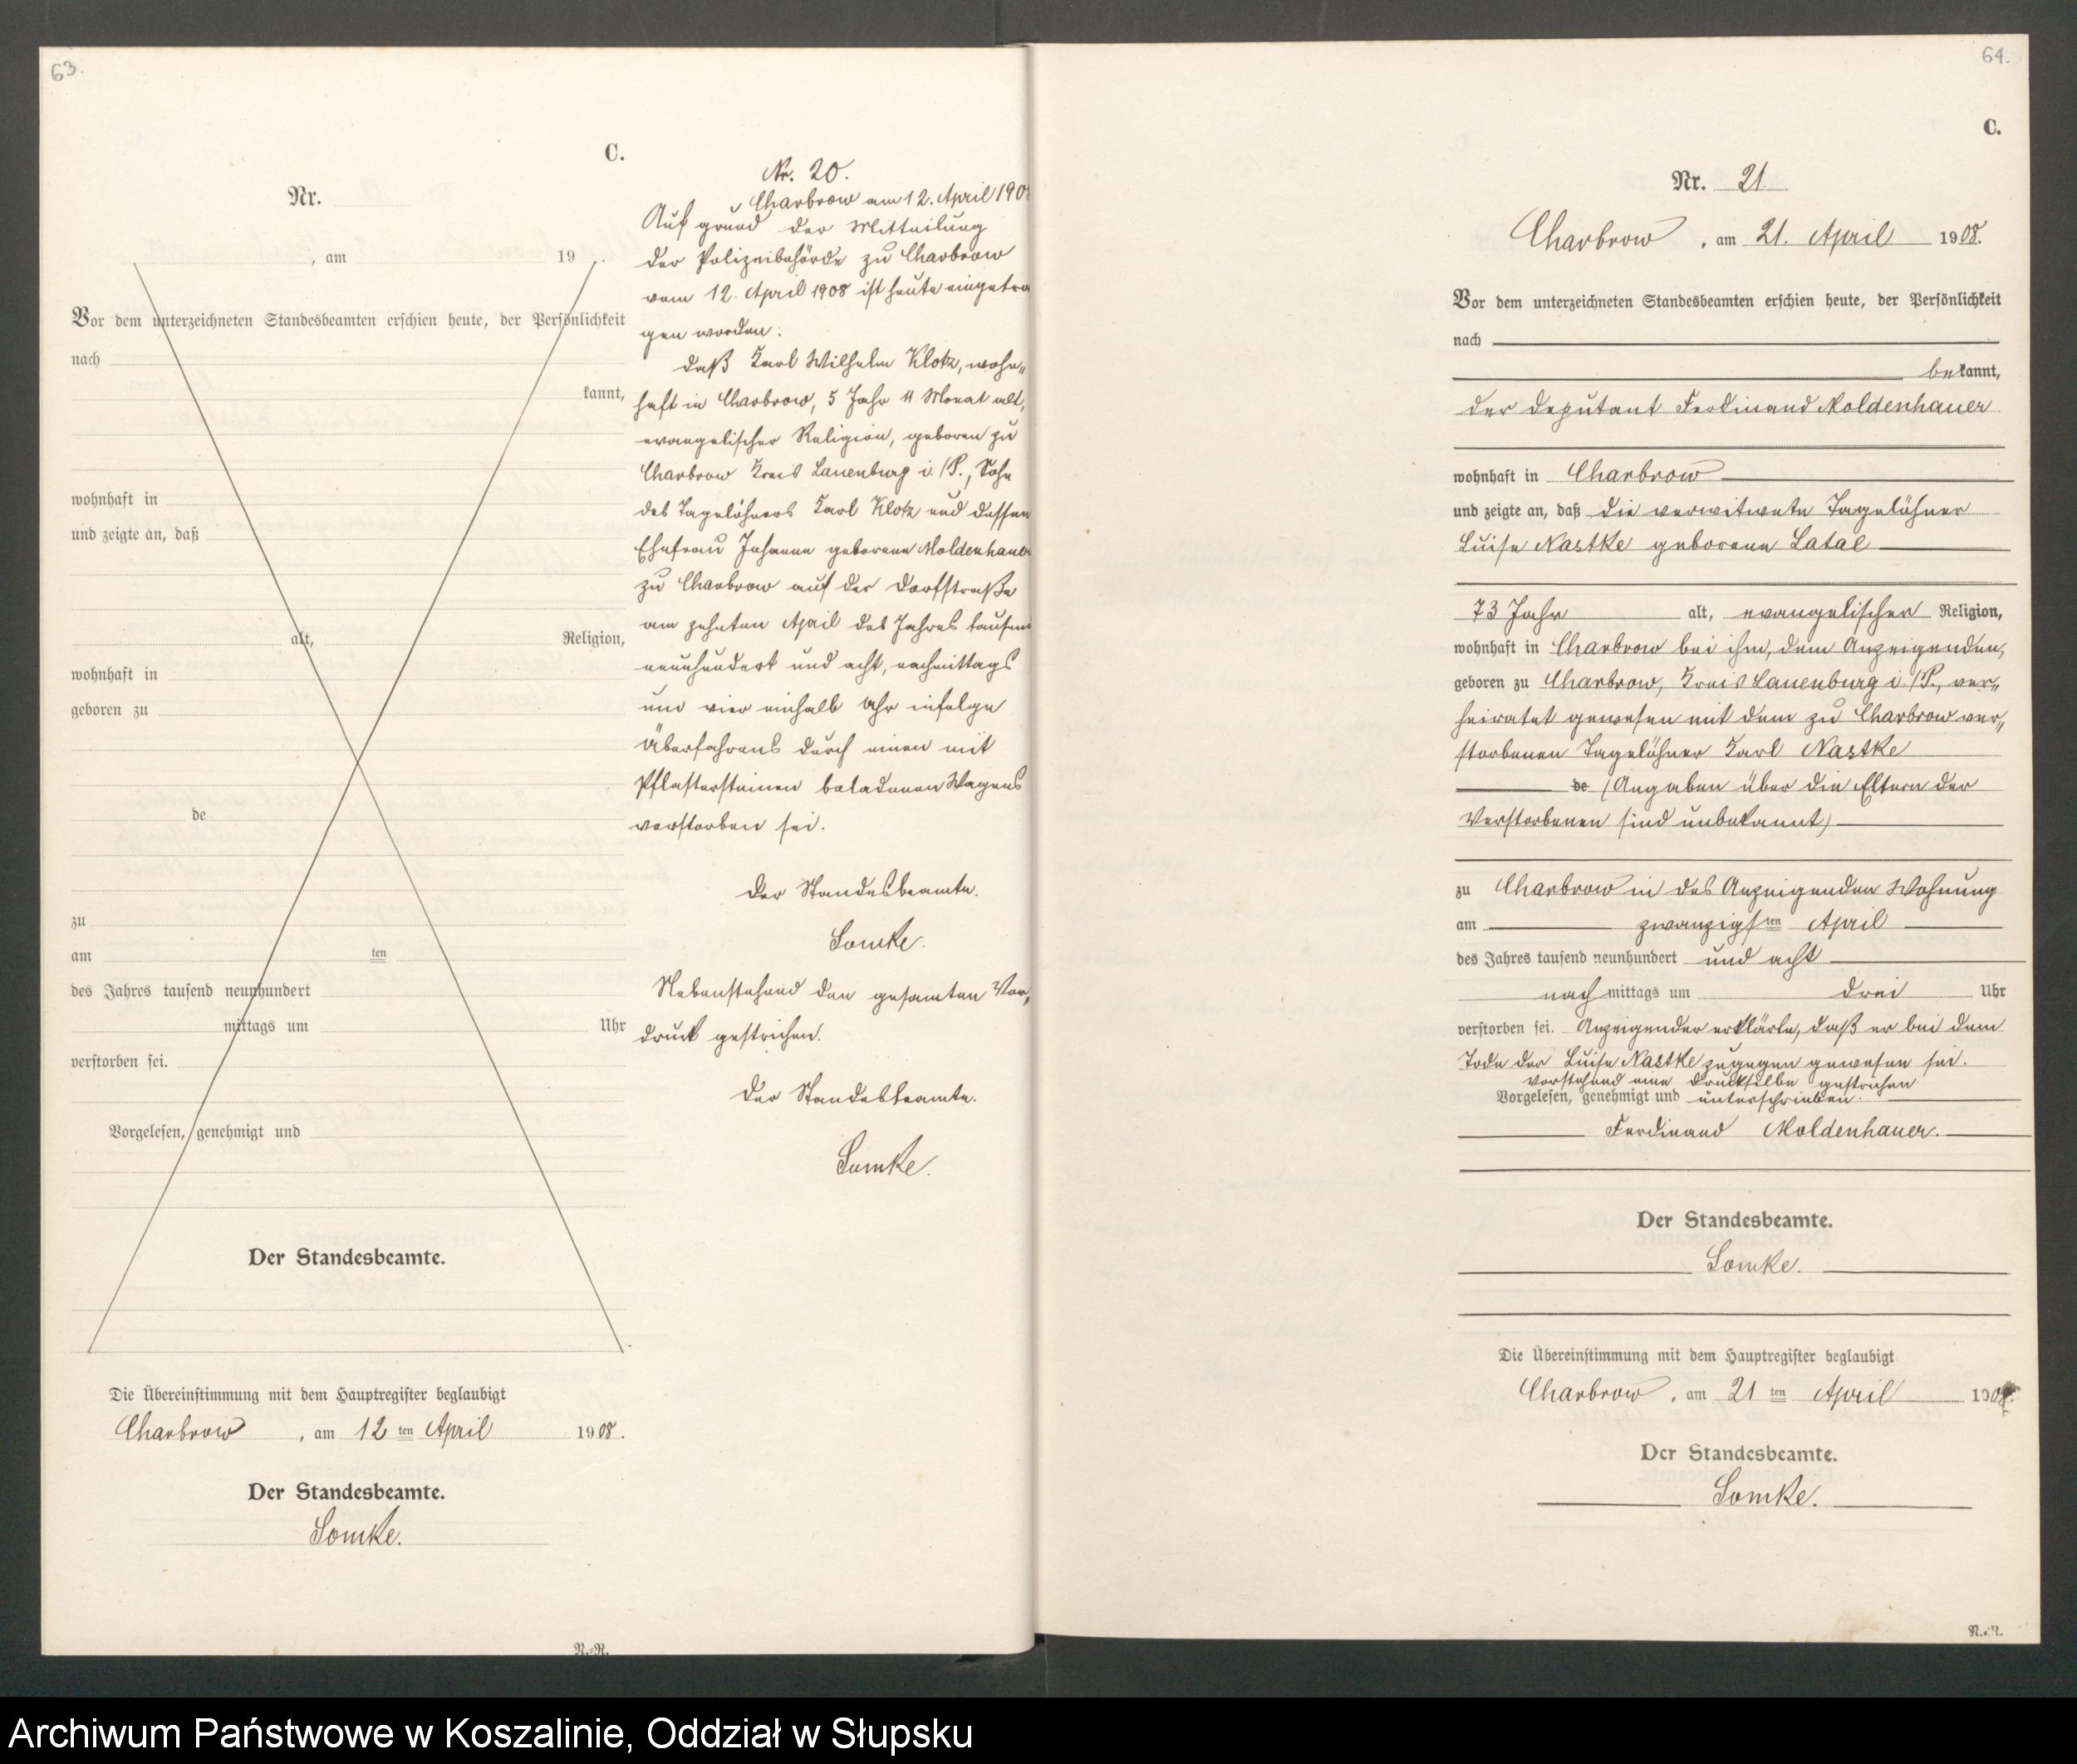 63.
C.
Nr.
, am 19 .
Vor dem unterzeichneten Standesbeamten erschien heute, der Persönlichkeit
nach
kannt,
wohnhaft in
und zeigte an, daß
alt, Religion,
wohnhaft in
geboren zu
de
zu
am ten
des Jahres tausend neunhundert
mittags um Uhr
verstorben sei.
Vorgelesen, genehmigt und
Der Standesbeamte.
Die Übereinstimmung mit dem Hauptregister beglaubigt
Charbrow, am 12 ten April 1908.
Der Standesbeamte.
Lomke.
N.-R.
Nr. 20.
Charbrow am 12. April 190
Auf grund der Mitteilung
der Polizeibehörde zu Charbrow
vom 12. April 1908 ist heute eingetra
gen worden:
daß Karl Wilhelm Klotz, wohn„
haft in Charbrow, 5 Jahr 11 Monat alt,
evangelischer Religion, geboren zu
Charbrow Kreis Lauenburg i./P., Sohn
des Tagelöhners Karl Klotz und dessen
Ehefrau Johanne geborene Moldenhauer
zu Charbrow auf der Dorfstraße
am zehnten April des Jahres tausend
neunhundert und acht, nachmittags
um vier einhalb Uhr infolge
Überfahrens durch einen mit
Pflastersteinen beladenen Wagens
verstorben sei.
Der Standesbeamte.
Lomke.
Nebenstehend den gesamten Vor„
druck gestrichen.
Der Standesbeamte.
Lomke.
64.
C.
Nr. 21
Charbrow, am 21. April 1908.
Vor dem unterzeichneten Standesbeamten erschien heute, der Persönlichkeit
nach
bekannt,
der Deputant Ferdinand Moldenhauer
wohnhaft in Charbrow
und zeigte an, daß die verwitwete Tagelöhner
Luise Nastke geborene Latal
73 Jahr alt, evangelischer Religion,
wohnhaft in Charbrow bei ihm, dem Anzeigenden,
geboren zu Charbrow, Kreis Lauenburg i./P., ver„
heiratet gewesen mit dem zu Charbrow ver„
storbenen Tagelöhner Karl Nastke
de (Angaben über die Eltern der
Verstorbenen sind unbekannt)
zu Charbrow in des Anzeigenden Wohnung
am zwanzigsten April
des Jahres tausend neunhundert und acht
nachmittags um drei Uhr
verstorben sei. Anzeigender erklärte, daß er bei dem
Tode der Luise Nastke zugegen gewesen sei.
Vorstehend eine Drucksilbe gestrichen
Vorgelesen, genehmigt und unterschrieben.
Ferdinand Moldenhauer.
Der Standesbeamte.
Lomke.
Die Übereinstimmung mit dem Hauptregister beglaubigt
Charbrow, am 21 ten April 1908.
Der Standesbeamte.
Lomke.
N.-R.
Archiwum Państwowe w Koszalinie, Oddział w Słupsku